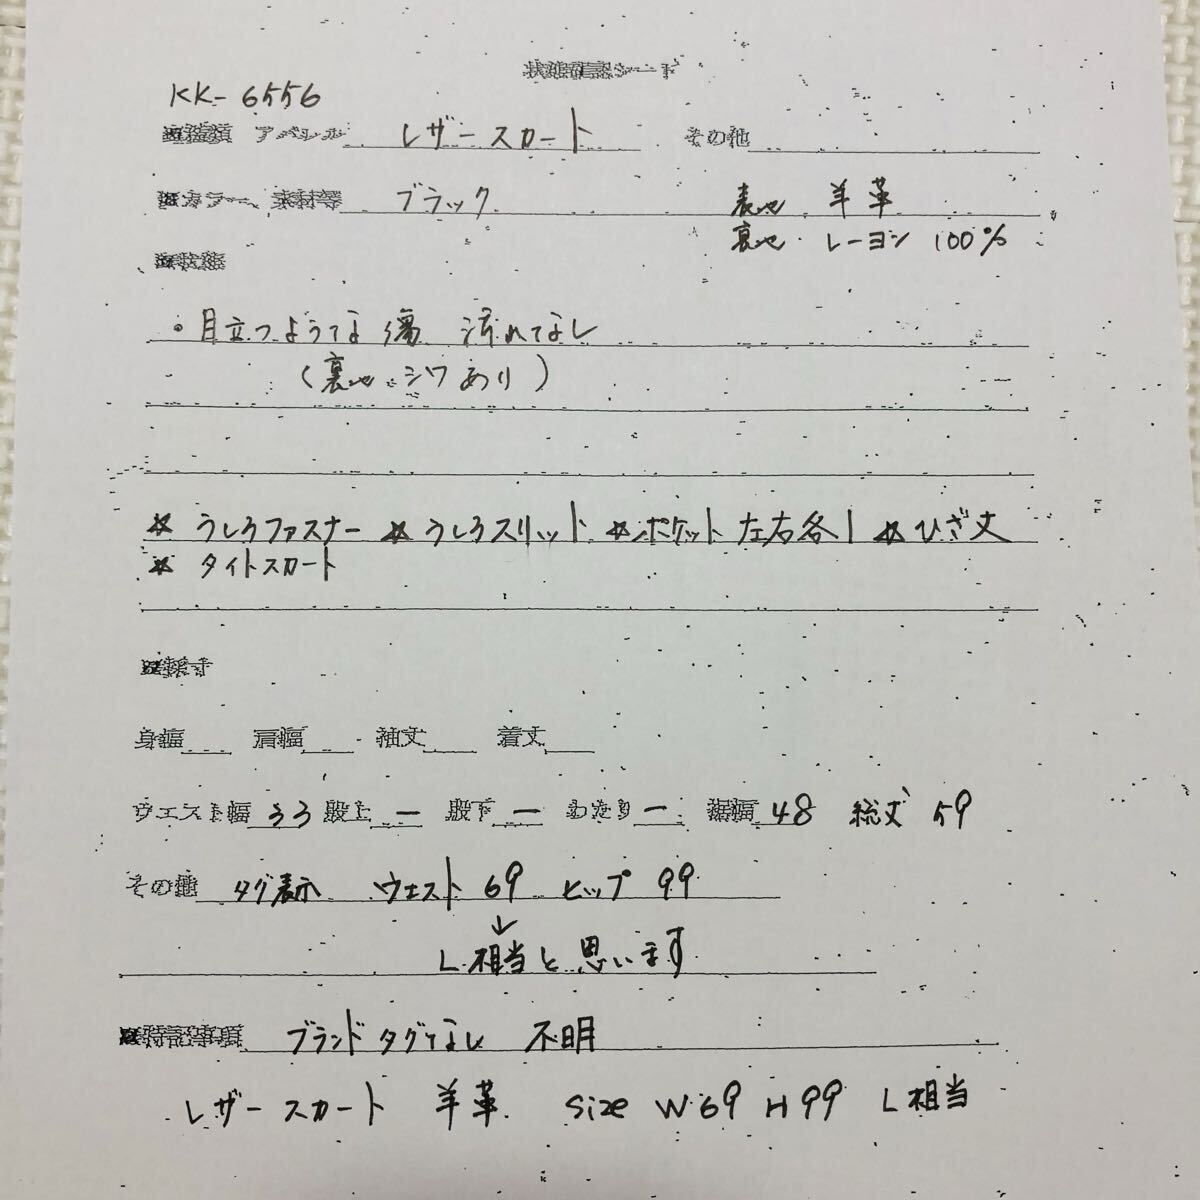 状態確認シート
KK-6556
■種類 アパレル レザースカート その他
■カラー、素材等 ブラック 表地 羊革
裏地・レーヨン 100%
■状態
。目立つような傷 汚れてなし
(裏地 シワあり)
☆ うしろファスナー ☆ うしろスリット ☆ポケット 左右各1 ☆ひざ丈
☆ タイトスカート
■採寸
身幅 肩幅 袖丈 着丈
ウエスト幅 33 股上 ー 股下 ー わたり ー 裾幅 48 総丈 59
その他 タグ表示 ウエスト 69 ヒップ 99
↓
L相当と思います
■特記事項 ブランドタグなし 不明
レザースカート 羊革 size W69 H99 L相当